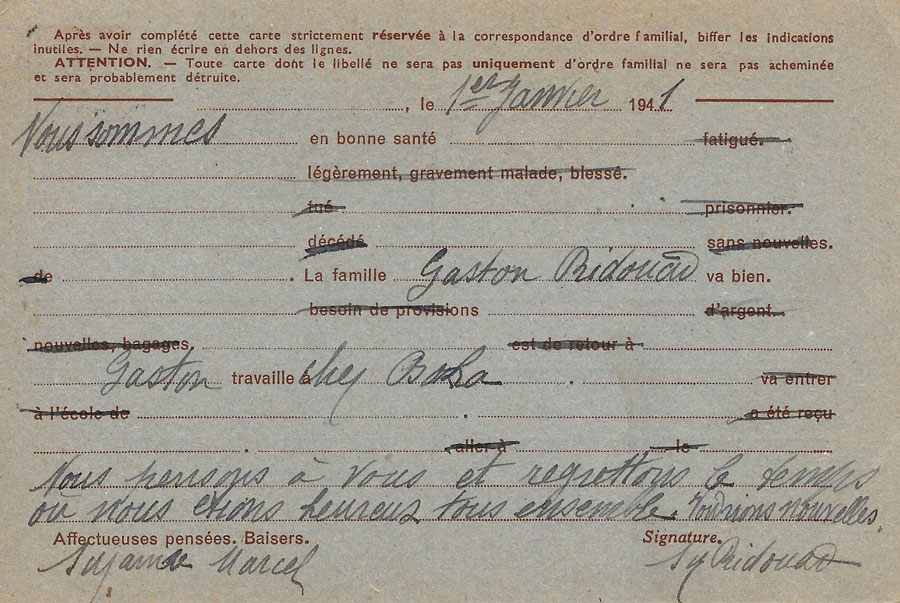 Après avoir complété cette carte strictement réservée à la correspondance d'ordre familial, biffer les indications
inutiles. — Ne rien écrire en dehors des lignes.
ATTENTION. — Toute carte dont le libellé ne sera pas uniquement d'ordre familial ne sera pas acheminée
et sera probablement détruite.
, le 1er Janvier 1941
Nous sommes en bonne santé fatigué.
légèrement, gravement malade, blessé.
tué prisonnier.
décédé sans nouvelles.
de . La famille Gaston Ridouad va bien.
besoin de provisions d'argent.
nouvelles, bagages, est de retour à
Gaston travaille à chez . va entrer
à l'école de . a été reçu
. aller à le
Nous pensons à vous et regrettons le temps
où nous étions heureux tous ensemble. Voudrions nouvelles.
Affectueuses pensées. Baisers. Signature.
Suzanne Marcel Sy Ridouad